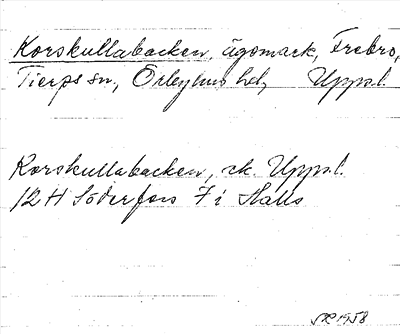 Korskullabacken, ägomark, Frebro,
Tierps sn, Örbyhus hd, Uppsl.
Korskullabacken, ek. Uppsl.
12 H Söderfors 7 i Halls
SR 1958